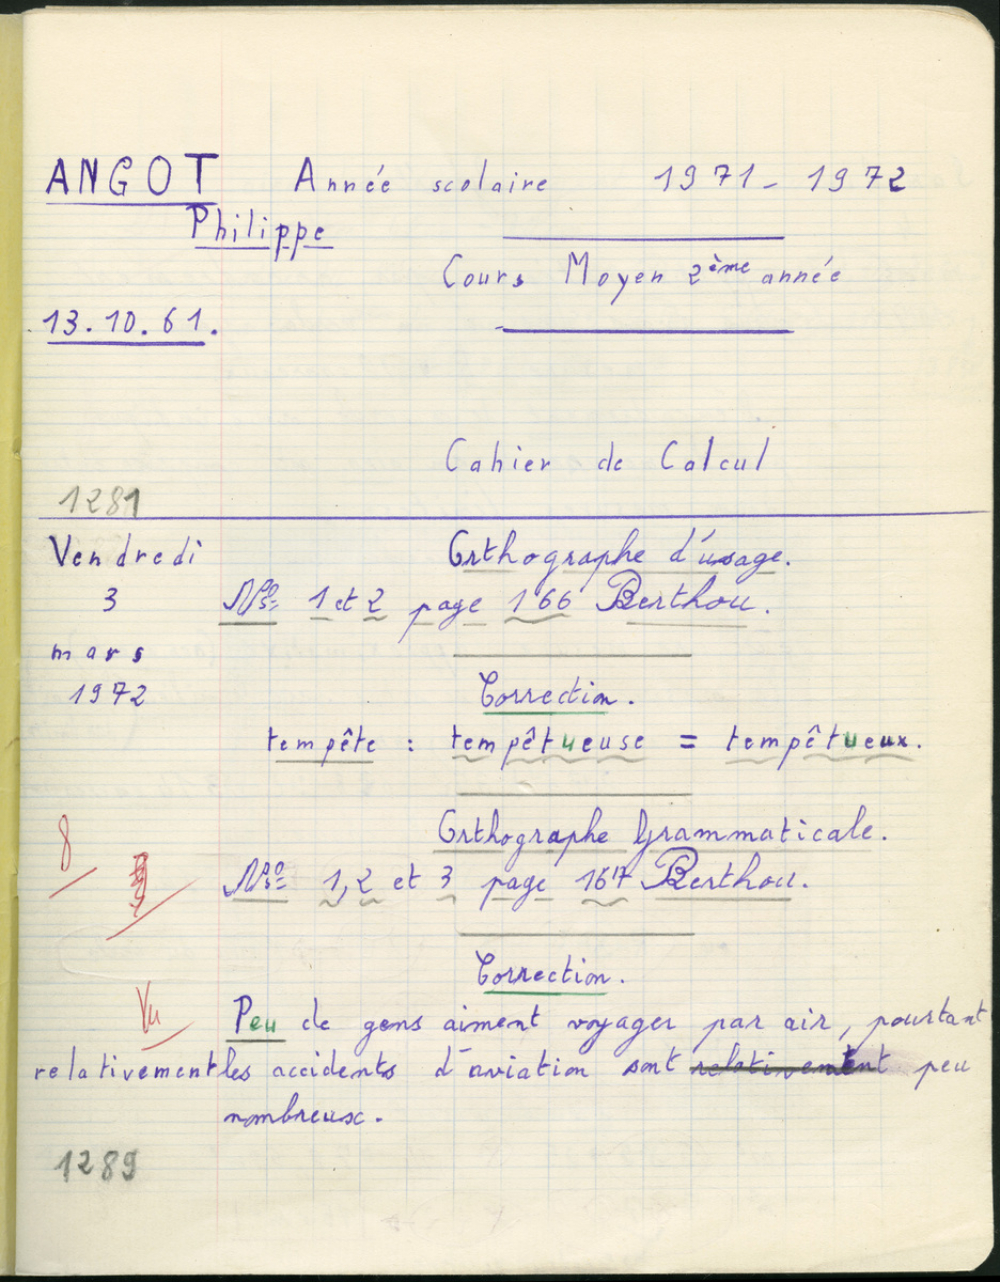 ANGOT Année scolaire 1971-1972
Philippe
Cours Moyen 2ème année
13.10.61.
Cahier de Calcul
1281
Vendredi Orthographe d'usage.
3 Nos 1 et 2 page 166 Berthou.
mars
1972 Correction.
tempête : tempêtueuse = tempêtueux.
8 Orthographe Grammaticale.
Nos 1, 2 et 3 page 167 Berthou.
Correction.
Vu Peu de gens aiment voyager par air, pourtant
relativement les accidents d'aviation sont relativement peu
nombreux.
1289